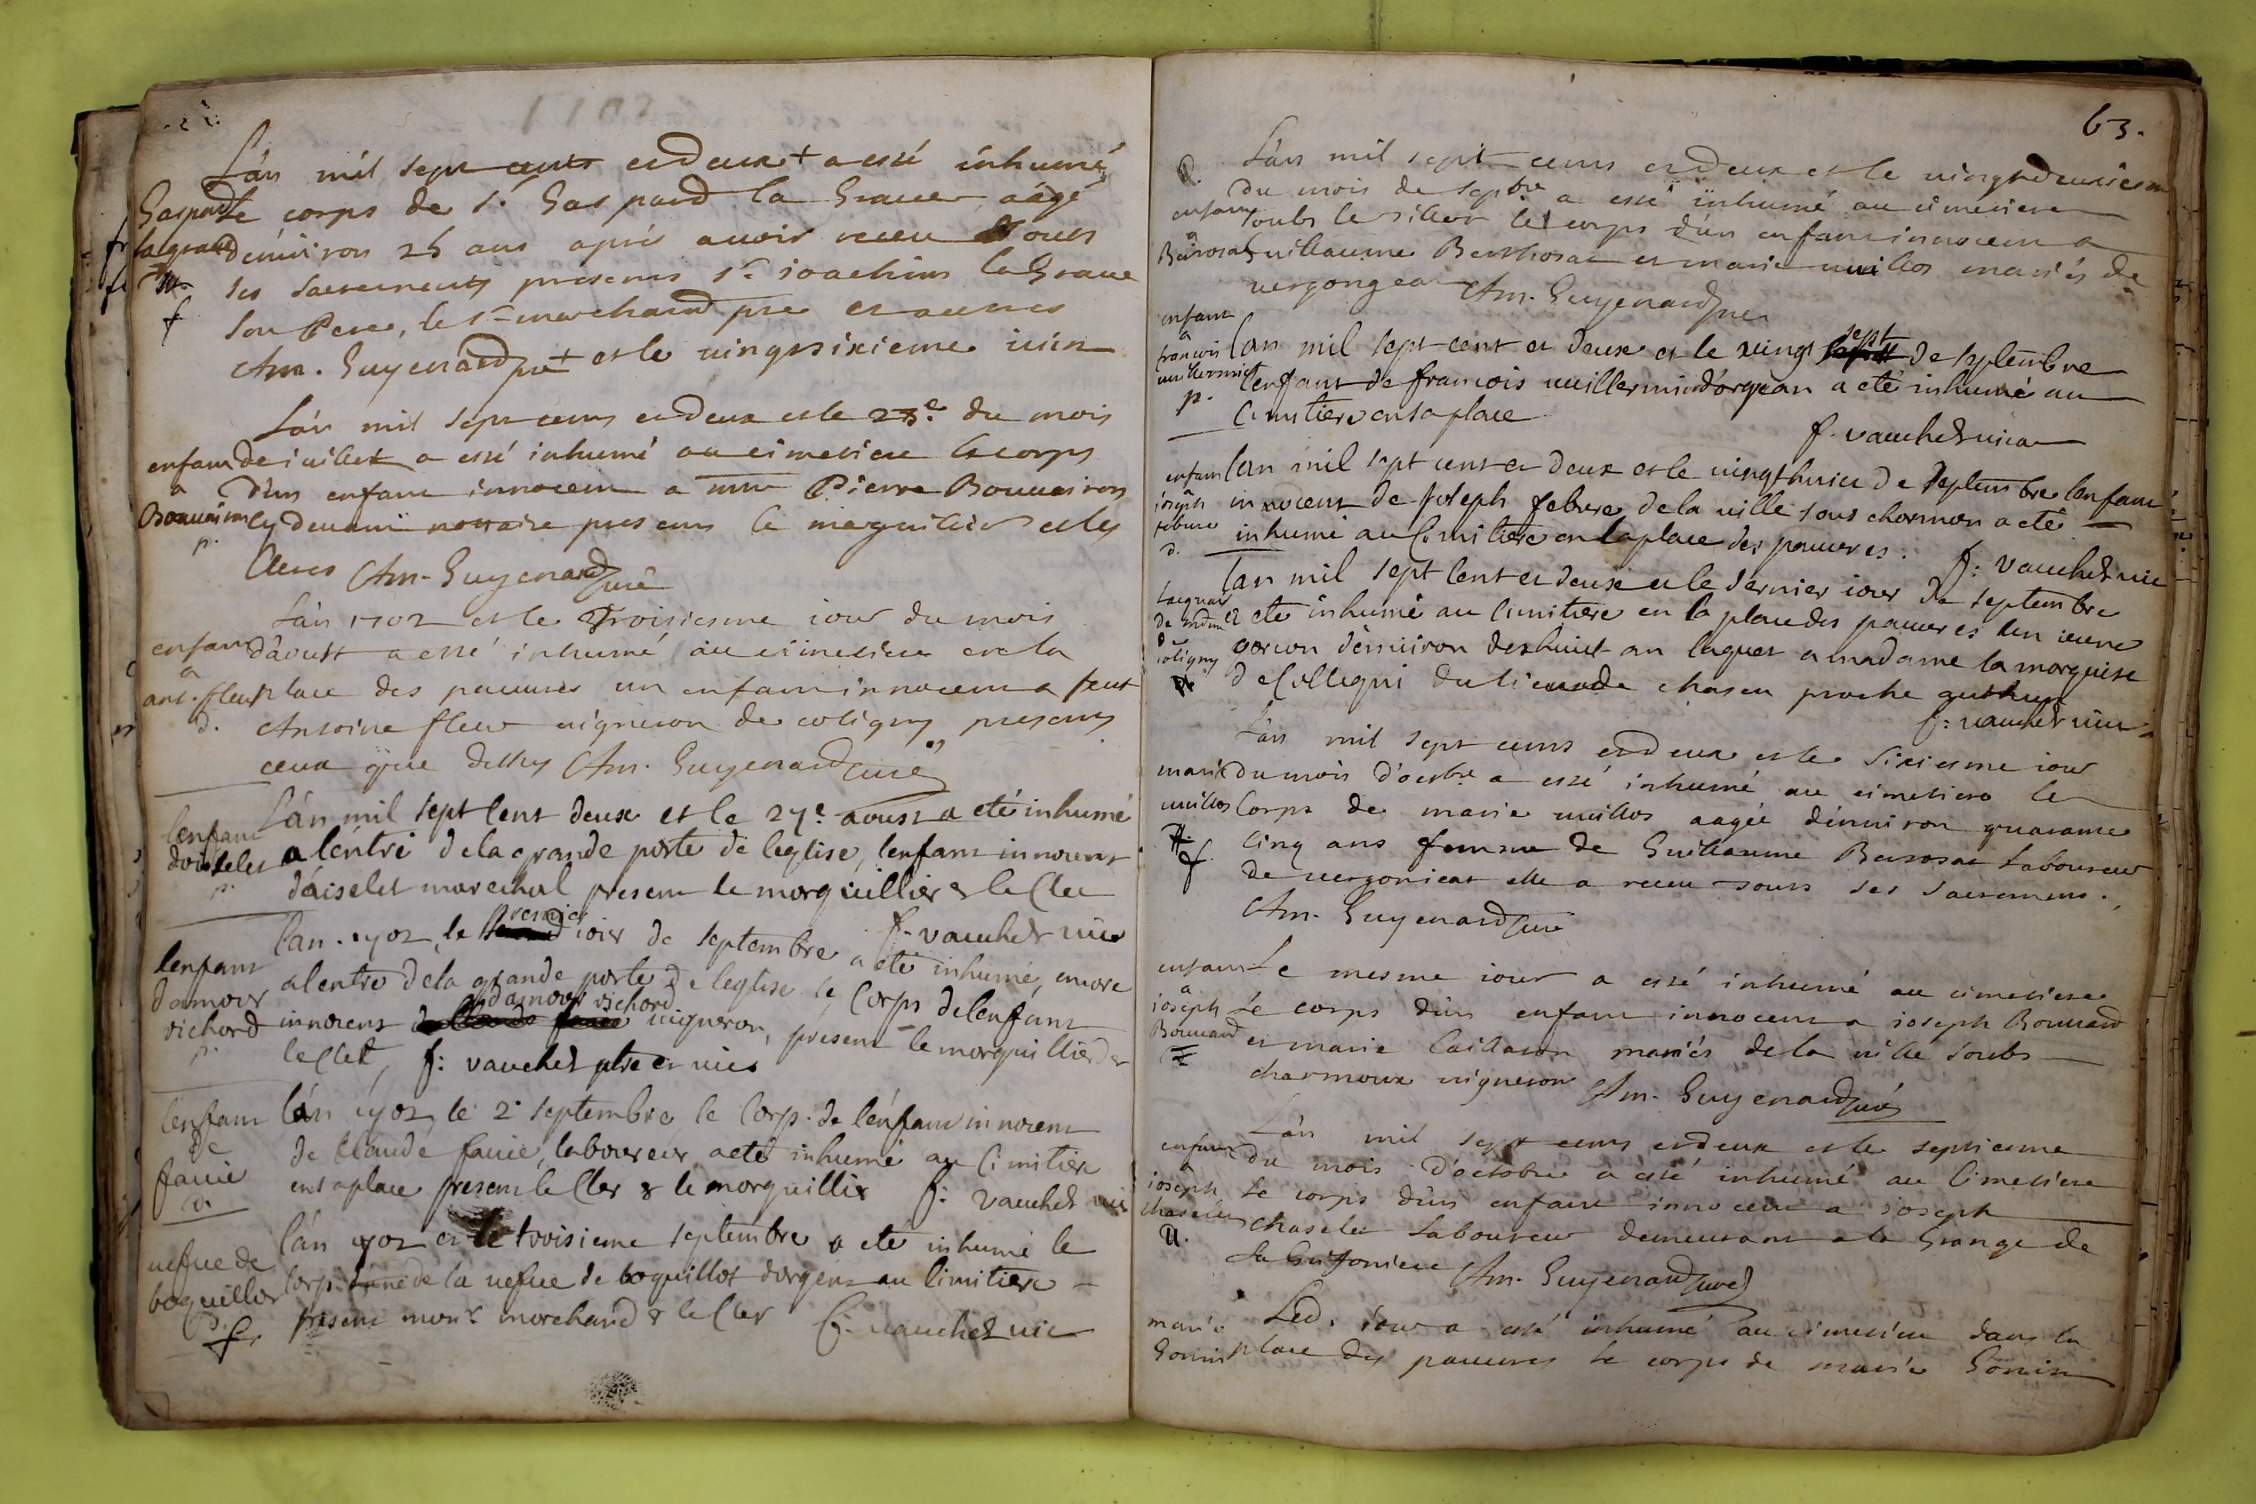 L'an mil sept cents et deux + a esté inhumé
Gaspard le corps de Sr Gaspard la Grauer aagé
denuiron 25 ans apres auoir receu tous
ses sacrements presents Sr ioachim la Graue
f son Pere, le Sr marchand pre et autres
Am. Guyenard pre + et le vingtsixieme iuin
L'an mil sept cens et deux et le 23e du mois
enfan de iuillet a esté inhumé au cimetiere le corps
a d'un enfant innocent a Pierre Bouueiron
cy deuant nottaire presens le marguilier et les
p. Clercs Am. Guyenard curé
L'an 1702 et le troisiesme iour du mois
enfan d'aoust a esté inhumé au cimetiere en la
a
ant. fleur place des pauures un enfant innocent a feut
d. Antoine fleur uigneron de coligny presents
ceux que dessus Am. Guyenard curé
L'an mil sept cent deux et le 27e aoust a eté inhumé
lenfan a lentré de la grande porte de leglise, lenfant innocent
d'oiselet
p. d'aiselet marechal present le morguillier & le Cler
f. vauchet uic
lan. 1702, le premier iour de septembre a eté inhumé, encore
lenfant alentre de la grande porte de leglise le Corps de lenfant
damour damour richord
richord innocent uigneron, present le morguillier &
p. le Cler, f: vauchet ptre et uic
lenfan l'an 1702 le 2e septembre le Corp. de l'enfan innocent
de de Claude fauie, laboureur a eté inhumé au Cimitiere
fauie en sa place present le Cler & le morguillie f: vauchet uic
l'an 1702 et le troisieme septembre a eté inhumé le
uefue de
boquillot corp de la uefue de boquillot dorgent au Cimitiere
f. present mons marchand & le Cler f: vauchet uic
63.
L'an mil sept cens et deux et le uingtdeuxiesme
d. du mois de septbre a esté inhumé au cimetiere
enfant soubs le tilleor le corps d'un enfant innocent a
a
Guillaume Berthosat et marie uuillot mariés de
uergongeat Am. Guyenard cure
enfant
a
francois lan mil sept cent et deux et le uingt sept de septembre
uuillermin lenfant de francois uuillermin dorgean a eté inhumé au
p. Cimitiere en sa place
f. vauchet uica
enfan lan mil sept cent et deux et le uingthuict de septembre lenfant
a
ioseph innocent de Joseph febure de la uille sous charmon a eté
febure
d. inhumé au Cimitiere en la place des pauures. f: vauchet uic
lan mil sept cent et deux et le dernier iour de septembre
Laquay
de mdme a eté inhumé au Cimitiere en la place des pauures un ieune
de
coligny garcon denuiron dexhuict an laquet a madame la marquise
de Colligni proche
f: vauchet uic
L'an mil sept cens et deux et le sixiesme iour
marie du mois d'octbre a esté inhumé au cimetiere le
uuillot Corps de marie uuillot aagée denuiron quarante
f. cinq ans femme de Guillaume Bertosat laboureur
de uergonieat elle a receu tous ses sacremens.
Am. Guyenard cure
enfant Le mesme iour a esté inhumé au cimetiere
a
ioseph Le corps d'un enfant innocent a ioseph Bouuard
Bouuard et marie Caillaton mariés de la uille soubs
charmoux uigneron Am. Guyenard curé
L'an mil sept cens et deux et le septiesme
enfant du mois d'octobre a esté inhumé au Cimetiere
a
ioseph Le corps d'un enfant innocent a ioseph
chaselet chaselet Laboureur demeurant a la Grange de
Am. Guyenard curé
marie Led. iour a esté inhumé au cimetiere dans la
Gonin place des pauures le corps de marie Gonin